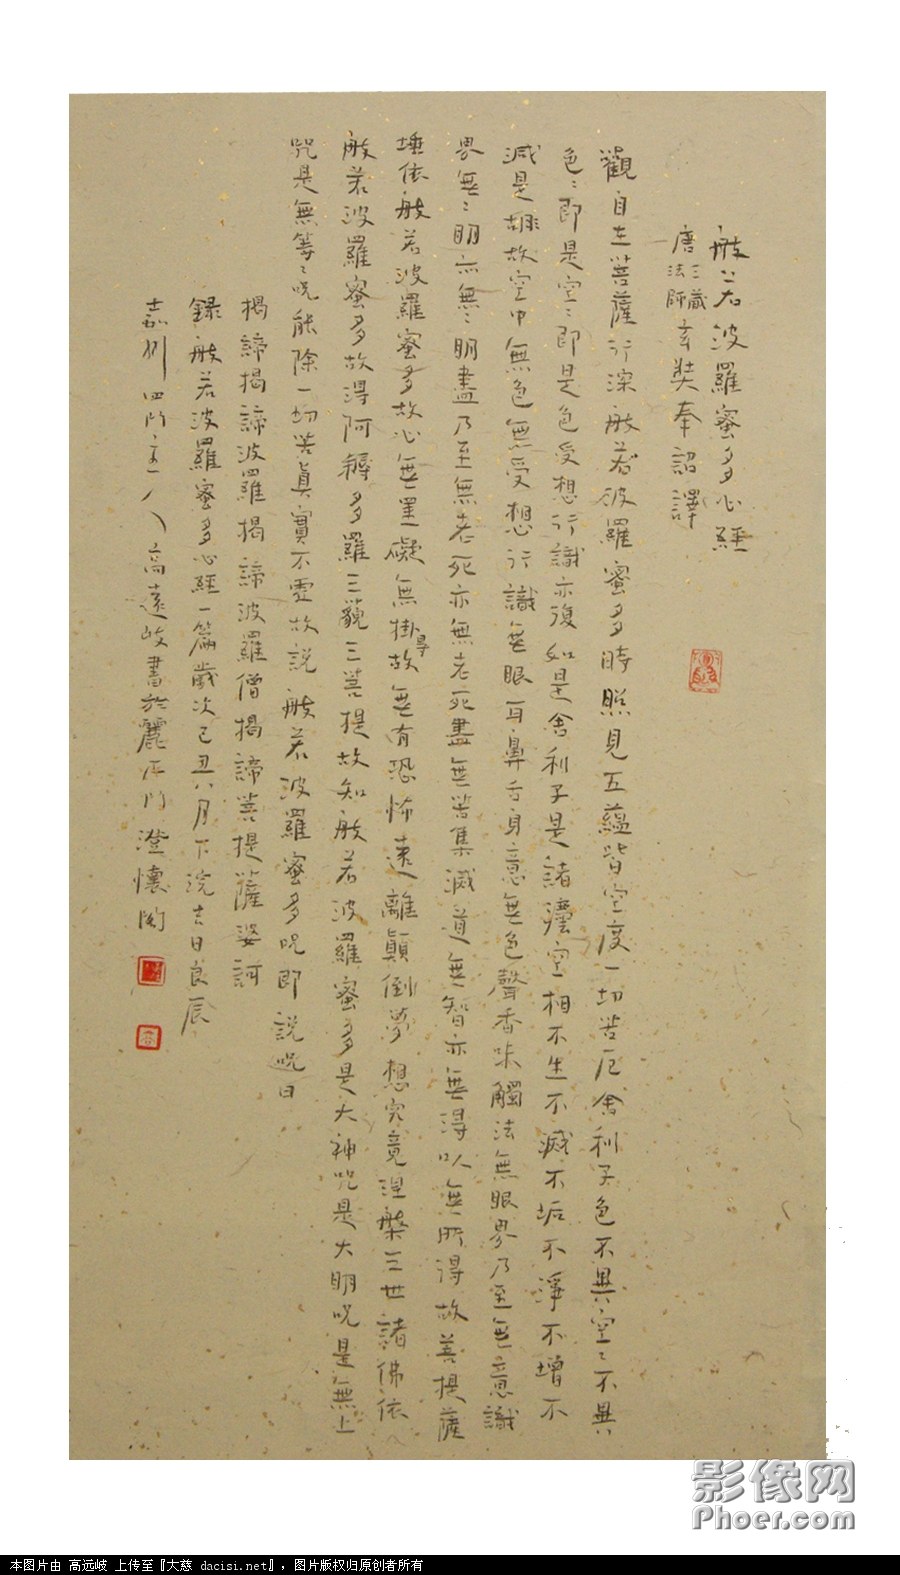 般若波羅蜜多心經
唐三藏法師玄奘奉詔譯
觀自在菩薩行深般若波羅蜜多時照見五蘊皆空度一切苦厄舍利子色不異空〻不異
色〻即是空〻即是色受想行識亦復如是舍利子是諸法空相不生不滅不垢不淨不增不
減是故空中無色無受想行識無眼耳鼻舌身意無色聲香味觸法無眼界乃至無意識
界無〻明亦無〻明盡乃至無老死亦無老死盡無苦集滅道無智亦無得以無所得故菩提薩
埵依般若波羅蜜多故心無罣礙無掛导故無有恐怖遠離顛倒夢想究竟涅槃三世諸佛依
般若波羅蜜多故得阿耨多羅三藐三菩提故知般若波羅蜜多是大神咒是大明咒是無上
咒是無等〻咒能除一切苦真實不虛故說般若波羅蜜多咒即說咒曰
揭諦揭諦波羅揭諦波羅僧揭諦菩提薩婆訶
錄般若波羅蜜多心經一篇歲次己丑八月下浣吉日良辰
嘉州 高遠岐書於麗江 澄懷閣
影像网
Phoer.com
本图片由 高远岐 上传至『大慈 dacisi.net』，图片版权归原创者所有